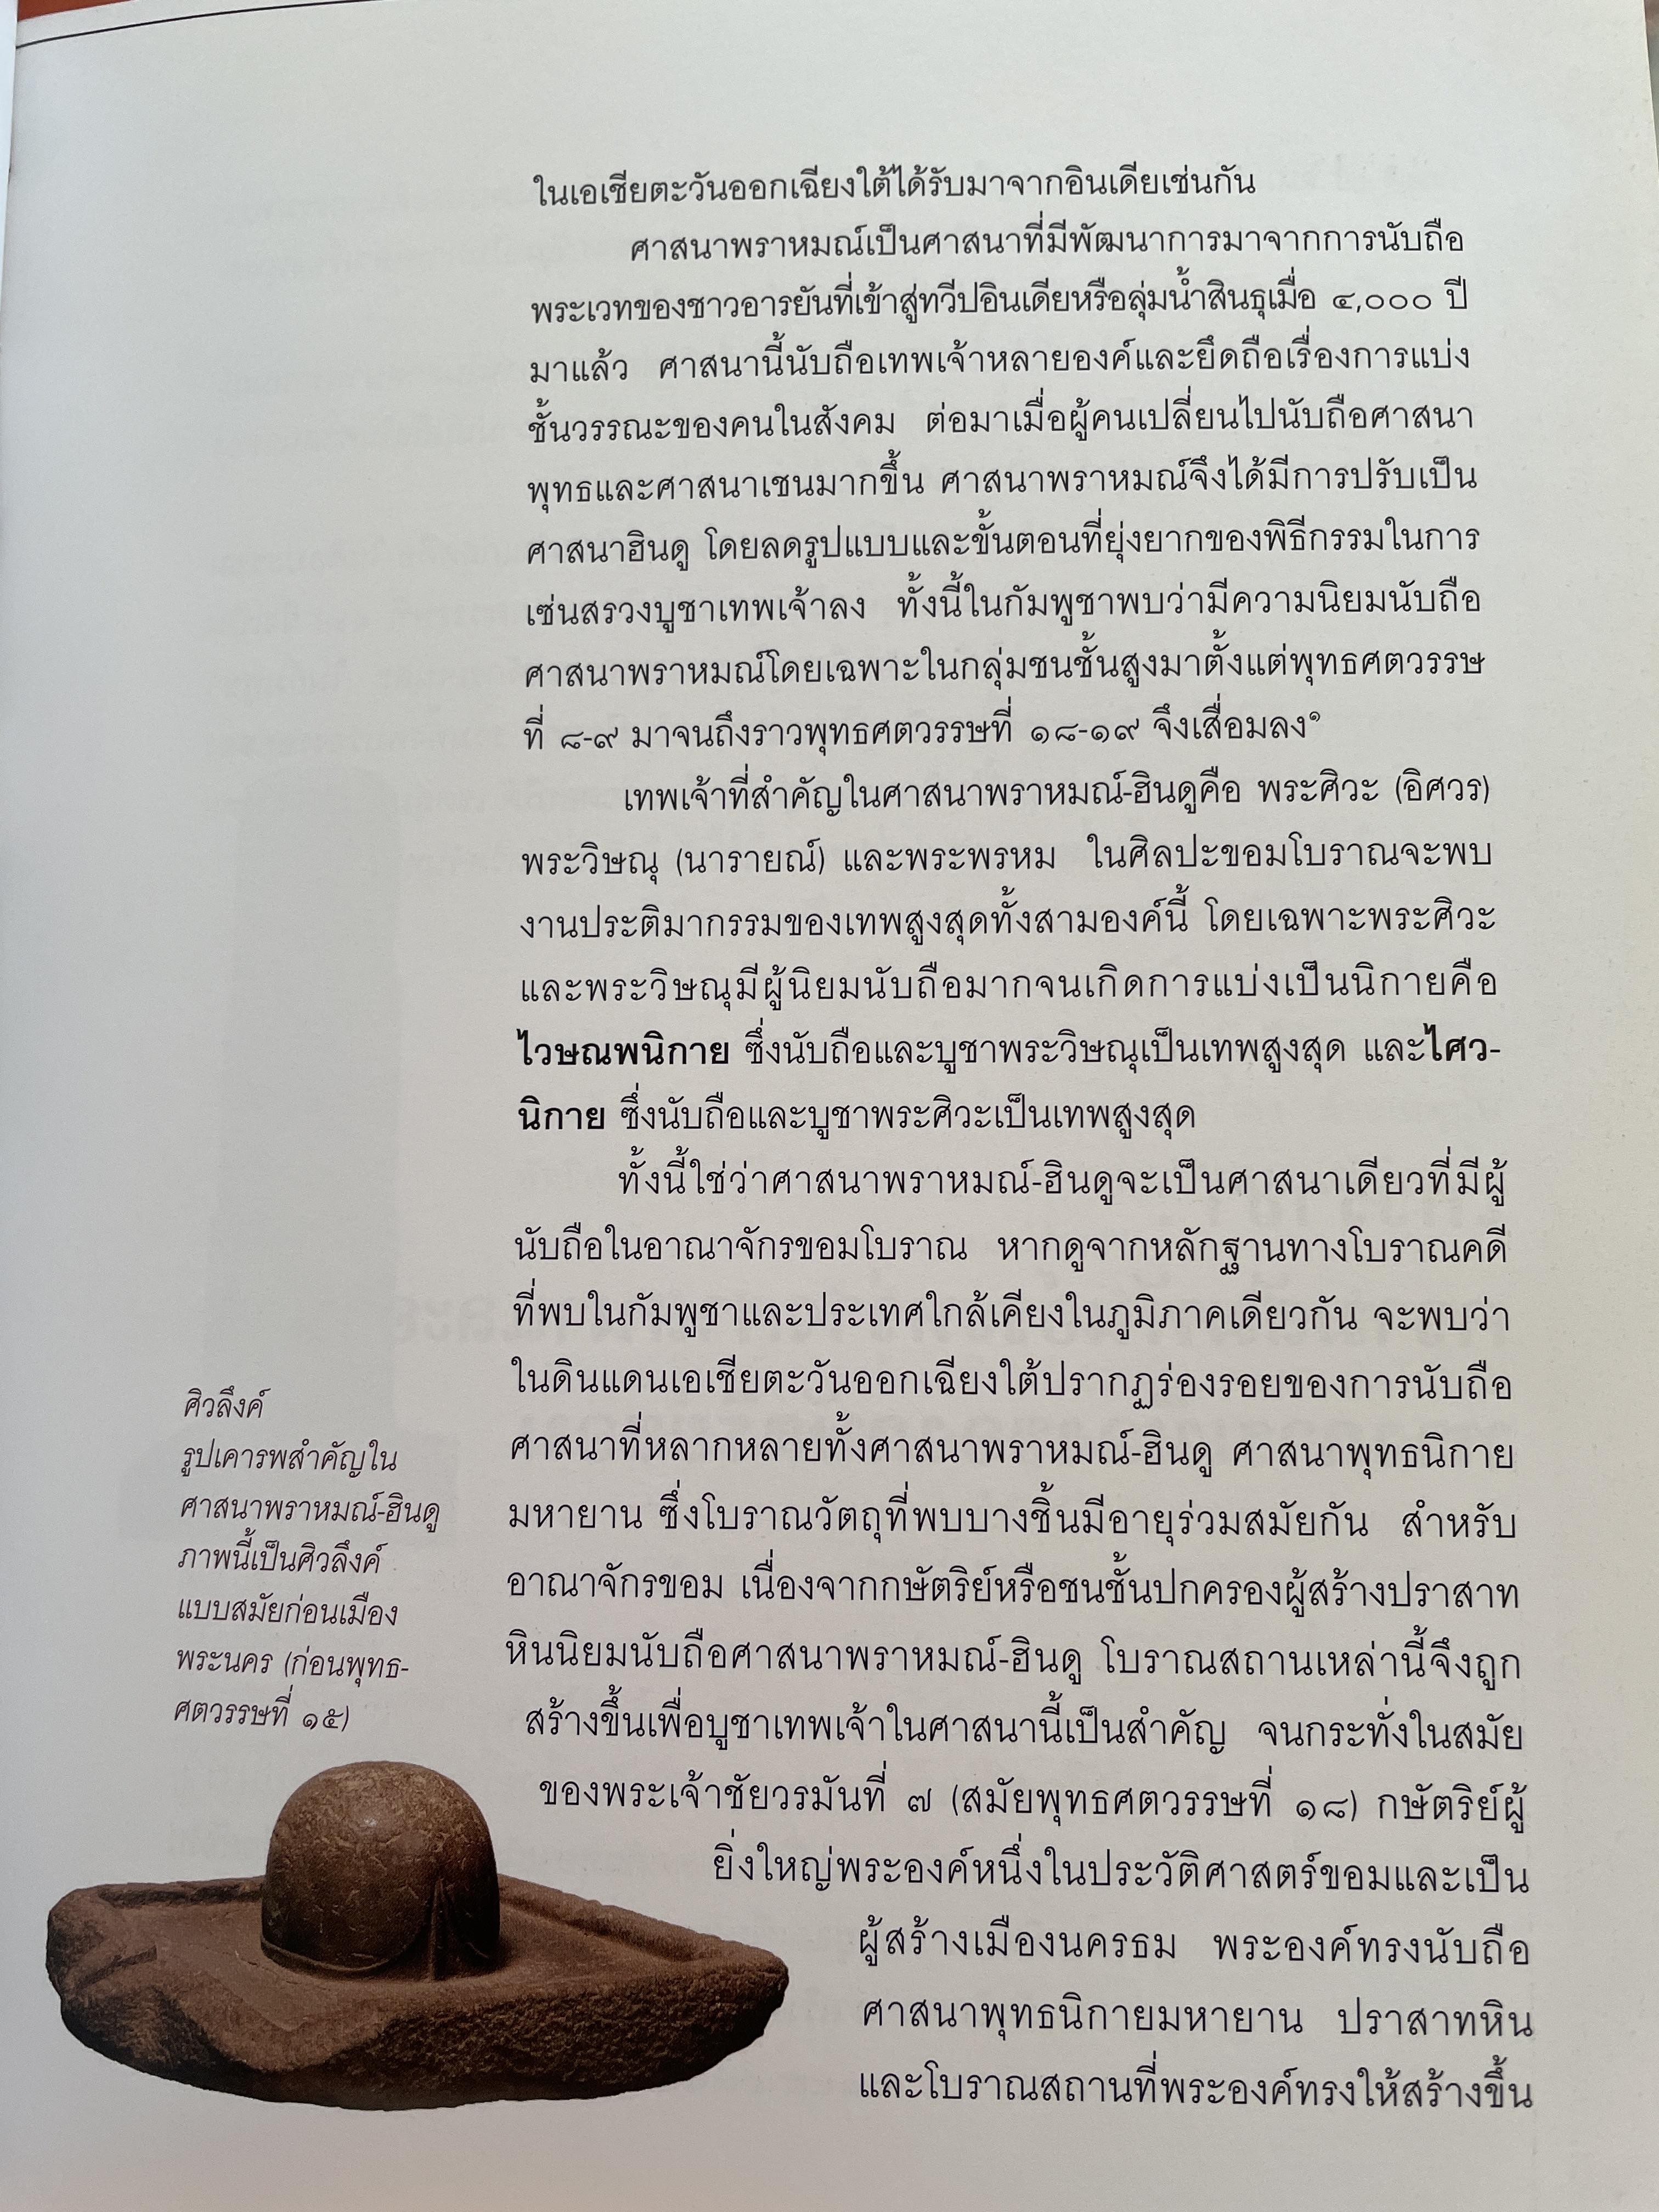 ในเอเชียตะวันออกเฉียงใต้ได้รับมาจากอินเดียเช่นกัน
ศาสนาพราหมณ์เป็นศาสนาที่มีพัฒนาการมาจากการนับถือ
พระเวทของชาวอารยันที่เข้าสู่ทวีปอินเดียหรือลุ่มน้ำสินธุเมื่อ ๔,๐๐๐ ปี
มาแล้ว ศาสนานี้นับถือเทพเจ้าหลายองค์และยึดถือเรื่องการแบ่ง
ชั้นวรรณะของคนในสังคม ต่อมาเมื่อผู้คนเปลี่ยนไปนับถือศาสนา
พุทธและศาสนาเชนมากขึ้น ศาสนาพราหมณ์จึงได้มีการปรับเป็น
ศาสนาฮินดู โดยลดรูปแบบและขั้นตอนที่ยุ่งยากของพิธีกรรมในการ
เซ่นสรวงบูชาเทพเจ้าลง ทั้งนี้ในกัมพูชาพบว่ามีความนิยมนับถือ
ศาสนาพราหมณ์โดยเฉพาะในกลุ่มชนชั้นสูงมาตั้งแต่พุทธศตวรรษ
ที่ ๘-๙ มาจนถึงราวพุทธศตวรรษที่ ๑๘-๑๙ จึงเสื่อมลง๑
เทพเจ้าที่สำคัญในศาสนาพราหมณ์-ฮินดูคือ พระศิวะ (อิศวร)
พระวิษณุ (นารายณ์) และพระพรหม ในศิลปะขอมโบราณจะพบ
งานประติมากรรมของเทพสูงสุดทั้งสามองค์นี้ โดยเฉพาะพระศิวะ
และพระวิษณุมีผู้นิยมนับถือมากจนเกิดการแบ่งเป็นนิกายคือ
ไวษณพนิกาย ซึ่งนับถือและบูชาพระวิษณุเป็นเทพสูงสุด และไศว-
นิกาย ซึ่งนับถือและบูชาพระศิวะเป็นเทพสูงสุด
ทั้งนี้ใช่ว่าศาสนาพราหมณ์-ฮินดูจะเป็นศาสนาเดียวที่มีผู้
นับถือในอาณาจักรขอมโบราณ หากดูจากหลักฐานทางโบราณคดี
ที่พบในกัมพูชาและประเทศใกล้เคียงในภูมิภาคเดียวกัน จะพบว่า
ในดินแดนเอเชียตะวันออกเฉียงใต้ปรากฏร่องรอยของการนับถือ
ศาสนาที่หลากหลายทั้งศาสนาพราหมณ์-ฮินดู ศาสนาพุทธนิกาย
มหายาน ซึ่งโบราณวัตถุที่พบบางชิ้นมีอายุร่วมสมัยกัน สำหรับ
อาณาจักรขอม เนื่องจากกษัตริย์หรือชนชั้นปกครองผู้สร้างปราสาท
หินนิยมนับถือศาสนาพราหมณ์-ฮินดู โบราณสถานเหล่านี้จึงถูก
สร้างขึ้นเพื่อบูชาเทพเจ้าในศาสนานี้เป็นสำคัญ จนกระทั่งในสมัย
ของพระเจ้าชัยวรมันที่ ๗ (สมัยพุทธศตวรรษที่ ๑๘) กษัตริย์ผู้
ยิ่งใหญ่พระองค์หนึ่งในประวัติศาสตร์ขอมและเป็น
ผู้สร้างเมืองนครธม พระองค์ทรงนับถือ
ศาสนาพุทธนิกายมหายาน ปราสาทหิน
และโบราณสถานที่พระองค์ทรงให้สร้างขึ้น
ศิวลึงค์
รูปเคารพสำคัญใน
ศาสนาพราหมณ์-ฮินดู
ภาพนี้เป็นศิวลึงค์
แบบสมัยก่อนเมือง
พระนคร (ก่อนพุทธ-
ศตวรรษที่ ๑๕)